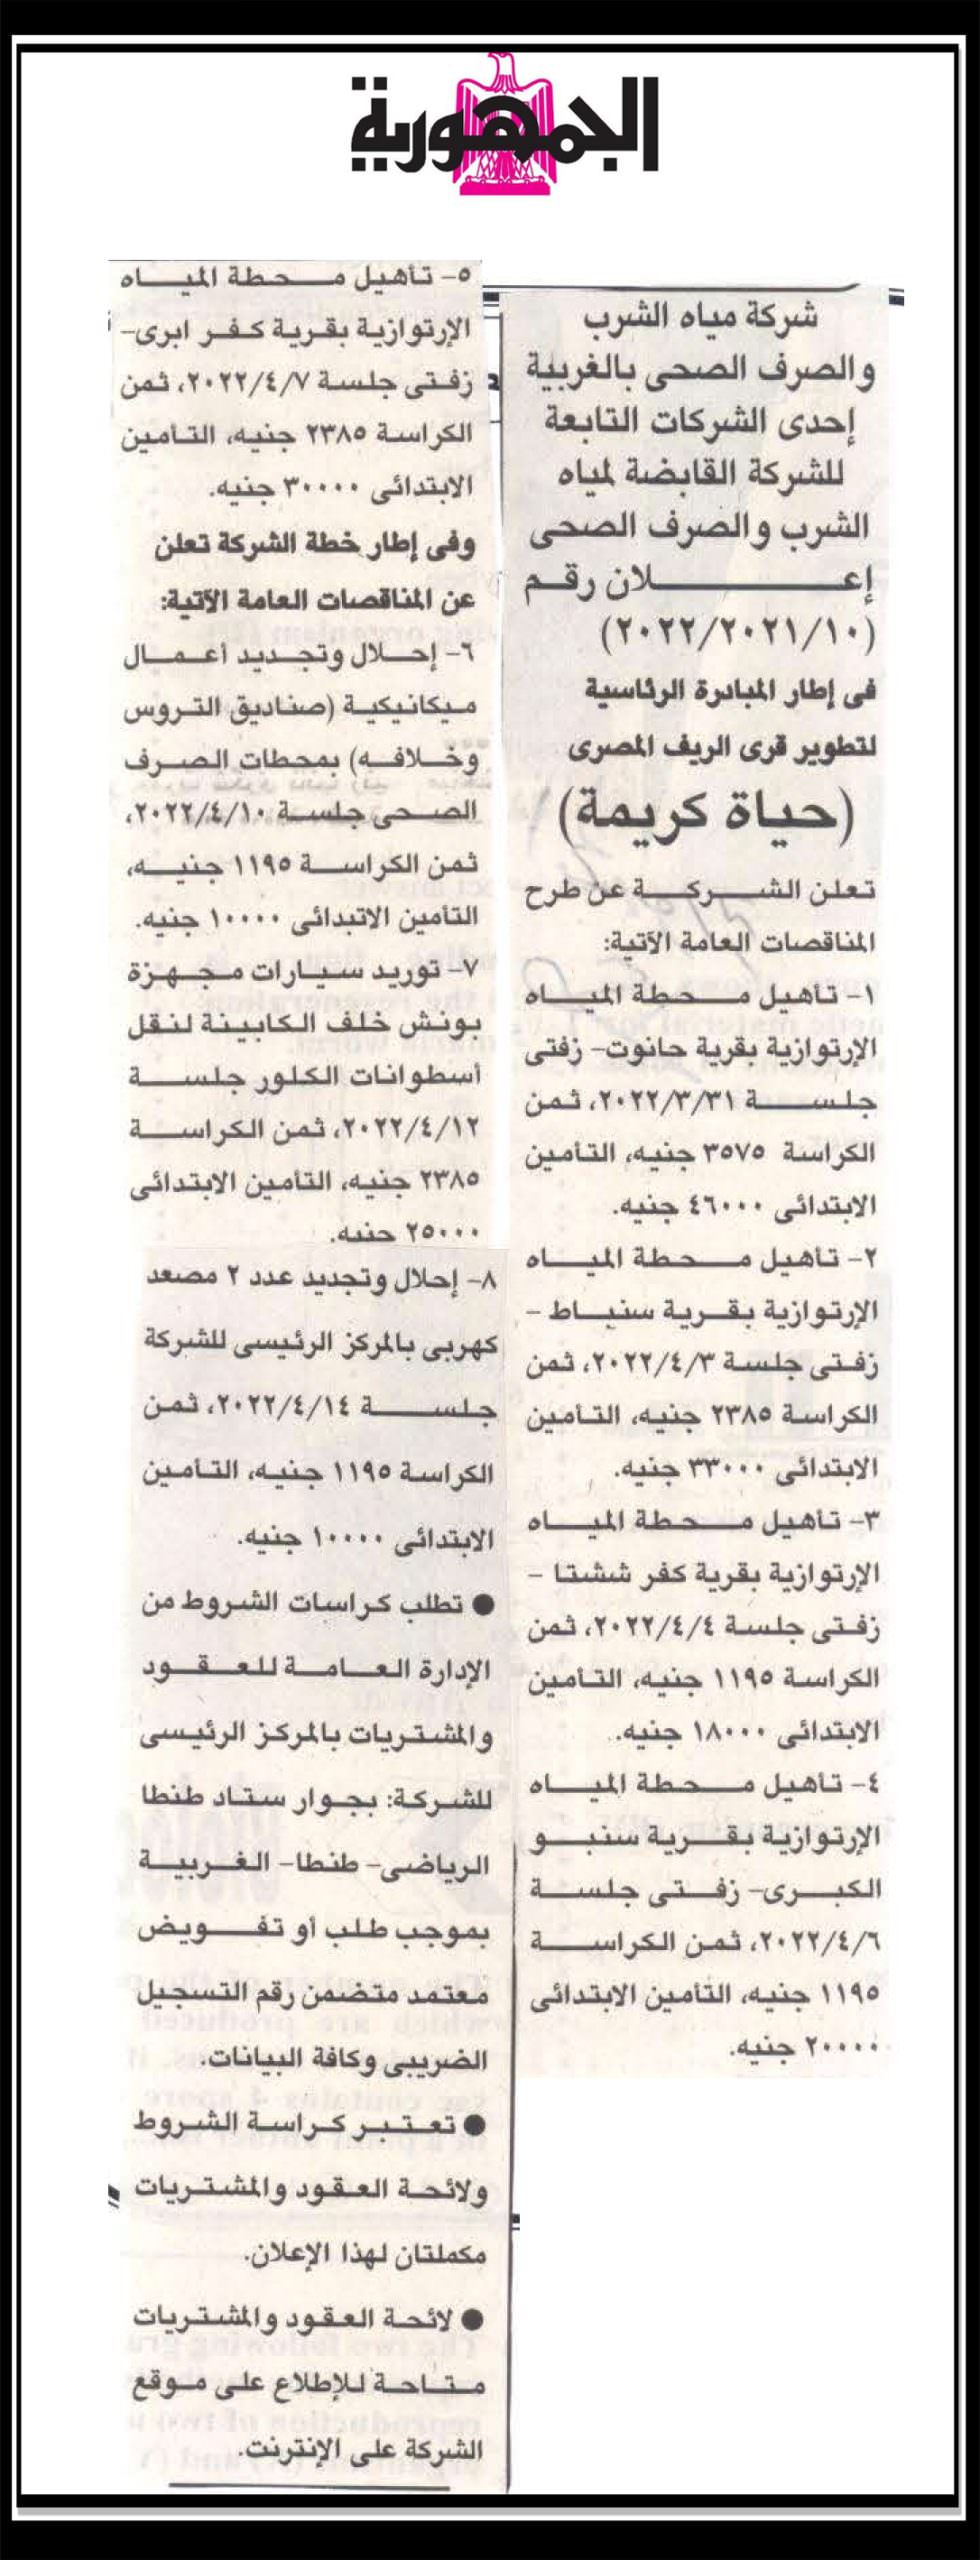 الجمهورية
شركة مياه الشرب
والصرف الصحى بالغربية
إحدى الشركات التابعة
للشركة القابضة لمياه
الشرب والصرف الصحى
إعلان رقم
(٢٠٢٢/٢٠٢١/١٠)
فى إطار المبادرة الرئاسية
لتطوير قرى الريف المصرى
(حياة كريمة)
تعلن الشركة عن طرح
المناقصات العامة الآتية:
١- تأهيل محطة المياه
الإرتوازية بقرية حانوت- زفتى
جلسة ٢٠٢٢/٣/٣١، ثمن
الكراسة ٣٥٧٥ جنيه، التأمين
الابتدائى ٤٦٠٠٠ جنيه.
٢- تأهيل محطة المياه
الإرتوازية بقرية سنباط -
زفتى جلسة ٢٠٢٢/٤/٣، ثمن
الكراسة ٢٣٨٥ جنيه، التأمين
الابتدائى ٣٣٠٠٠ جنيه.
٣- تأهيل محطة المياه
الإرتوازية بقرية كفر ششتا -
زفتى جلسة ٢٠٢٢/٤/٤، ثمن
الكراسة ١١٩٥ جنيه، التأمين
الابتدائى ١٨٠٠٠ جنيه.
٤- تأهيل محطة المياه
الإرتوازية بقرية سنبو
الكبرى- زفتى جلسة
٢٠٢٢/٤/٦، ثمن الكراسة
١١٩٥ جنيه، التأمين الابتدائى
٢٠٠٠٠ جنيه.
٥- تأهيل محطة المياه
الإرتوازية بقرية كفر ابرى-
زفتى جلسة ٢٠٢٢/٤/٧، ثمن
الكراسة ٢٣٨٥ جنيه، التأمين
الابتدائى ٣٠٠٠٠ جنيه.
وفى إطار خطة الشركة تعلن
عن المناقصات العامة الآتية:
٦- إحلال وتجديد أعمال
ميكانيكية (صناديق التروس
وخلافه) بمحطات الصرف
الصحى جلسة ٢٠٢٢/٤/١٠،
ثمن الكراسة ١١٩٥ جنيه،
التأمين الاتبدائى ١٠٠٠٠ جنيه.
٧- توريد سيارات مجهزة
بونش خلف الكابينة لنقل
أسطوانات الكلور جلسة
٢٠٢٢/٤/١٢، ثمن الكراسة
٢٣٨٥ جنيه، التأمين الابتدائى
٢٥٠٠٠ جنيه.
٨- إحلال وتجديد عدد ٢ مصعد
كهربى بالمركز الرئيسى للشركة
جلسة ٢٠٢٢/٤/١٤، ثمن
الكراسة ١١٩٥ جنيه، التأمين
الابتدائى ١٠٠٠٠ جنيه.
● تطلب كراسات الشروط من
الإدارة العامة للعقود
والمشتريات بالمركز الرئيسى
للشركة: بجوار ستاد طنطا
الرياضى- طنطا- الغربية
بموجب طلب أو تفويض
معتمد متضمن رقم التسجيل
الضريبى وكافة البيانات.
● تعتبر كراسة الشروط
ولائحة العقود والمشتريات
مكملتان لهذا الإعلان.
● لائحة العقود والمشتريات
متاحة للإطلاع على موقع
الشركة على الإنترنت.